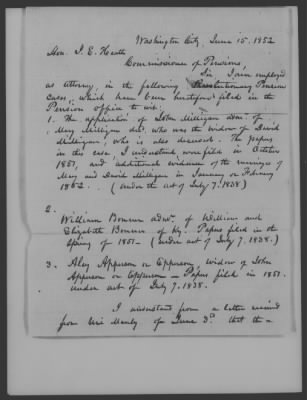 Washington City, June 15, 1852
Hon. J. E. Heath
Commissioner of Pensions,
Sir I am employed
as Attorney, in the following Revolutionary Pension
Cases, which have been heretofore filed in the
Pension office to wit:
1. The application of John Milligan admr. of
Mary Milligan decd. who was the widow of David
Milligan, who is also deceased. The papers
in this case, I understand, were filed in October
1851, and additional evidence of the marriage of
Mary and David Milligan in January or February
1852. (Under the act of July 7. 1838)
2.
William Bowmer admr. of William and
Elizabeth Bowmer of Ky. Papers filed in the
Spring of 1851 - (under act of July 7, 1838.)
3. Aley Apperson or Epperson, widow of John
Apperson or Epperson - Papers filed in 1851.
under act of July 7. 1838.
I understand from a letter received
from Uri Manly of June 3d. that the